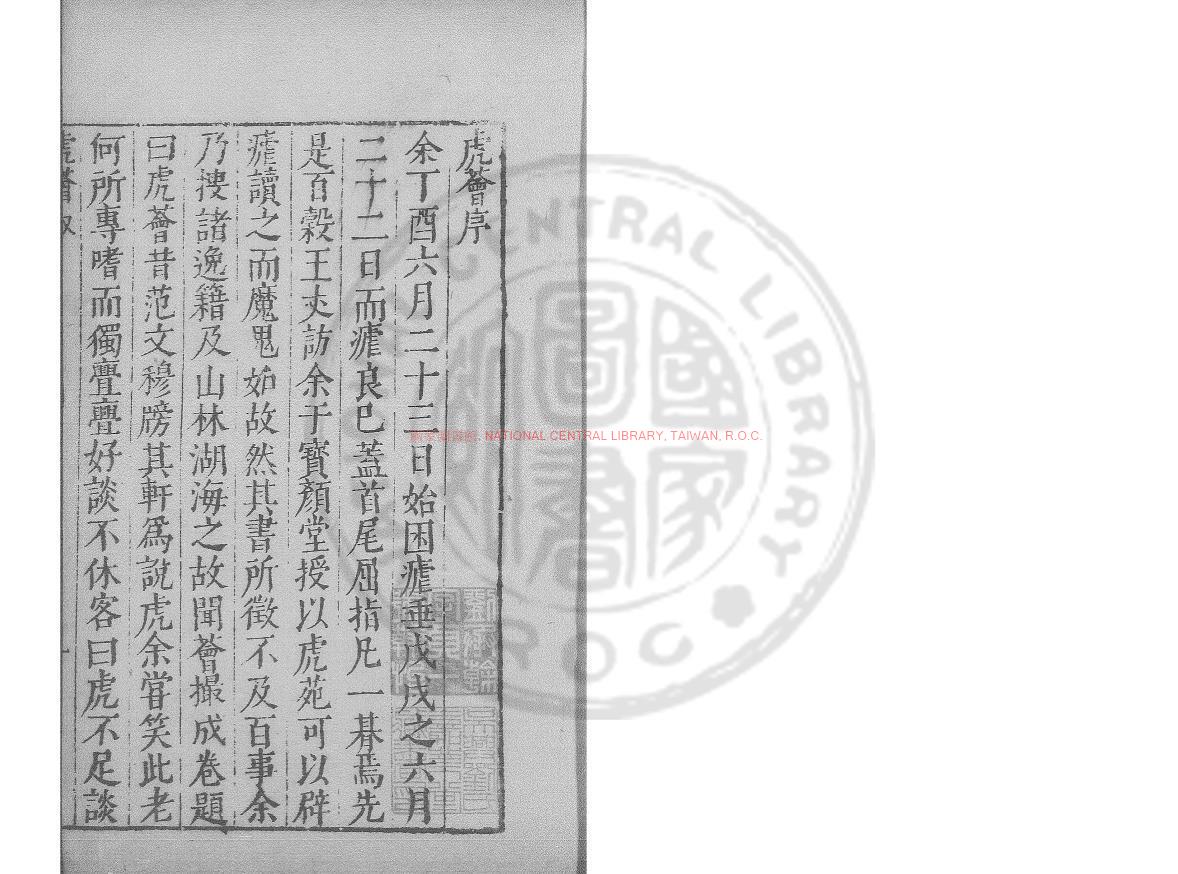 虎薈序
余丁酉六月二十三日始困瘧垂戊戌之六月
二十二日而瘧良巳蓋首尾屈指凡一朞焉先
是百穀王丈訪余于寳顏堂授以虎苑可以辟
瘧讀之而魔鬼如故然其書所徵不及百事余
乃搜諸逸籍及山林湖海之故聞薈撮成卷題
曰虎薈昔范文穆牓其軒爲說虎余甞笑此老
何所專嗜而獨亹亹好談不休客曰虎不足談
虎薈叙
一
NATIONAL CENTRAL LIBRARY, TAIWAN, R.O.C.
CENTRAL LIBRARY
R.O.C
國家圖書館